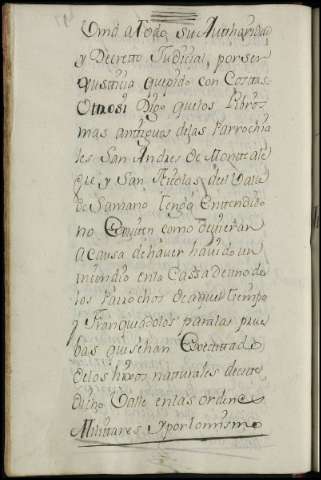 Vmd a Todo su Authoridad
y Decreto Judicial, por ser
Justicia que pido con Costas.
Otrosi Digo que los Libros
mas antiguos de las Parrochia
les San Andres de Montecale
gre, y San Nicolas del Valle
de Samano tengo entendido
no Existen como dijeran
a causa de haver havido un
incendio en la Cassa de uno de
los Parrochos de aquel Tiempo
y Franqueadolos para las prue
bas que se han Executado
de los hijos naturales de este
dicho Valle en las ordenes
Militares y por lo mismo